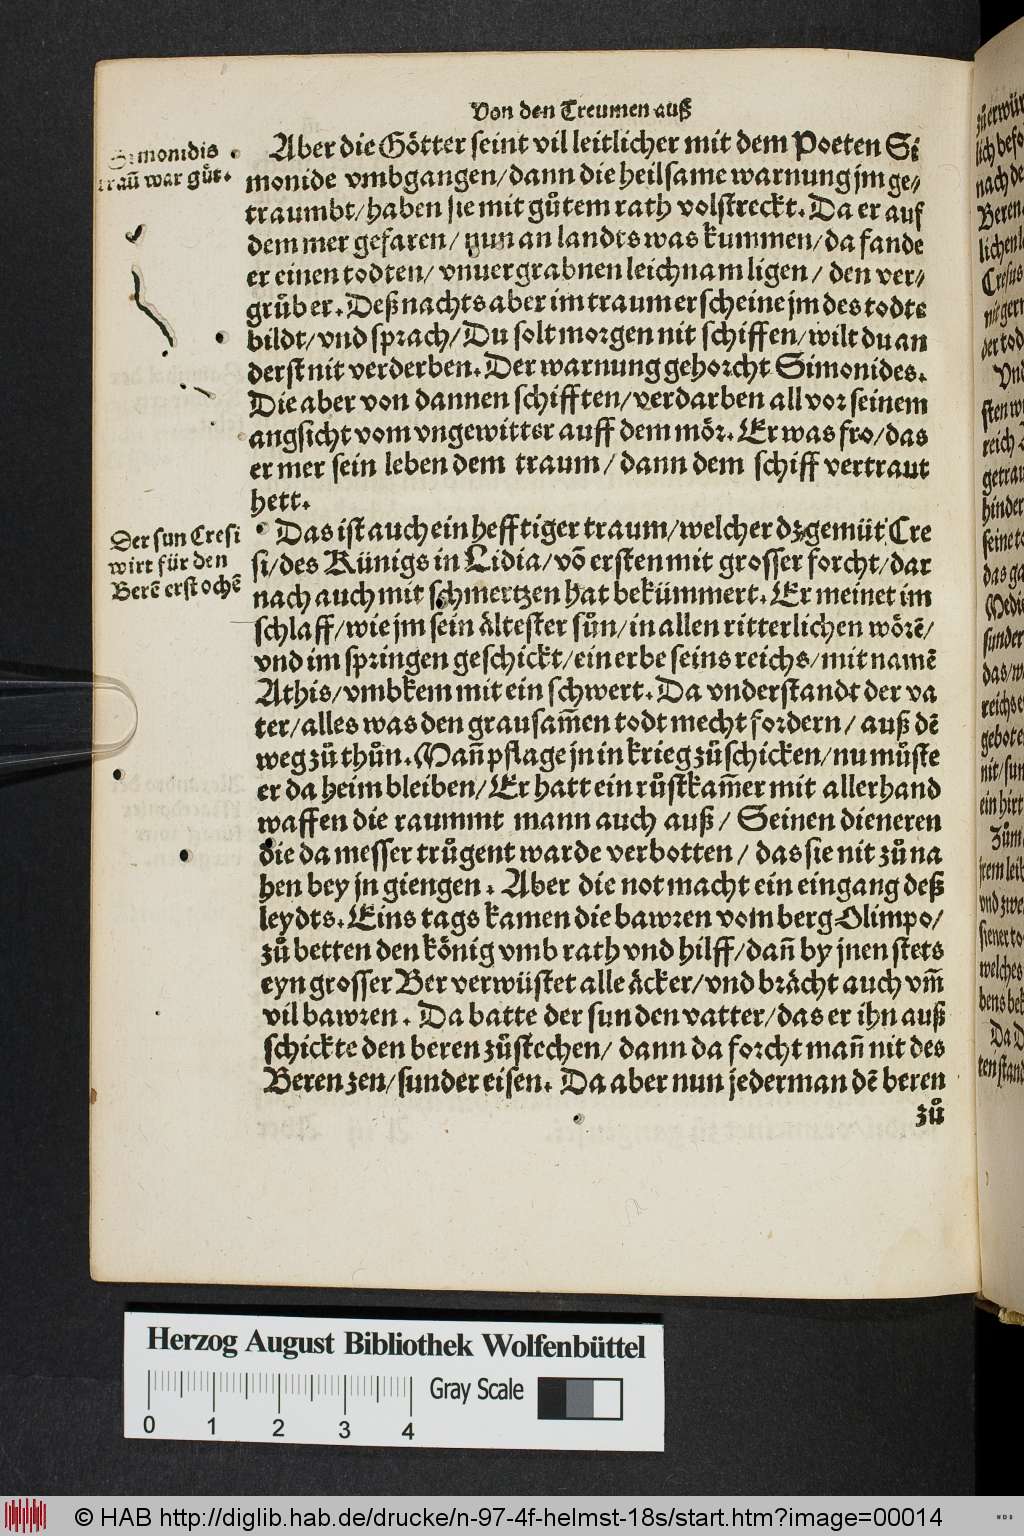 Von den Treumen auß
Simonidis
trau̅ war gůt.
Aber die Götter seint vil leitlicher mit dem Poeten Si
monide vmbgangen/dann die heilsame warnung jm ge⸗
traumbt/haben sie mit gůtem rath volstreckt. Da er auf
dem mer gefaren/ nun an landts was kummen/da fande
er einen todten/ vnuergrabnen leichnam ligen/ den ver⸗
grůb er. Deß nachts aber im traum erscheine jm des todtē
bildt/vnd sprach/Du solt morgen nit schiffen/wilt du an
derst nit verderben. Der warnung gehorcht Simonides.
Die aber von dannen schifften/verdarben all vor seinem
angsicht vom vngewitter auff dem mör. Er was fro/das
er mer sein leben dem traum/dann dem schiff vertraut
hett.
Der sun Cresi
wirt für den
Berē erstochē
Das ist auch ein hefftiger traum/welcher dz gemüt Cre
si/des Künigs in Lidia/vō ersten mit grosser forcht/dar
nach auch mit schmertzen hat bekümmert. Er meinet im
schlaff/wie jm sein ältester sůn/in allen ritterlichen wörē/
vnd im springen geschickt/ein erbe seins reichs/mit namē
Athis/vmbkem mit ein schwert. Da vnderstandt der va
ter/alles was den grausam̅en todt mecht fordern/ auß dē
weg zů thůn. Man̅ pflage jn in krieg zů schicken/nu můste
er daheim bleiben/ Er hatt ein růstkam̅er mit allerhand
waffen die raummt mann auch auß/ Seinen dieneren
die da messer trůgent warde verbotten/ das sie nit zů na
hen bey jn giengen. Aber die not macht ein eingang deß
leydts. Eins tags kamen die bawren vom berg Olimpo/
zů betten den könig vmb rath vnd hilff/dan̅ by jnen stets
eyn grosser Ber verwüstet alle äcker/vnd brächt auch vm̅
vil bawren. Da batte der sun den vatter/das er ihn auß
schickte den beren zů stechen/ dann da forcht man̅ nit des
Beren zen/sunder eisen. Da aber nun jederman dē beren
zů
Herzog August Bibliothek Wolfenbüttel
Gray Scale
0 1 2 3 4
© HAB http://diglib.hab.de/drucke/n-97-4f-helmst-18s/start.htm?image=00014